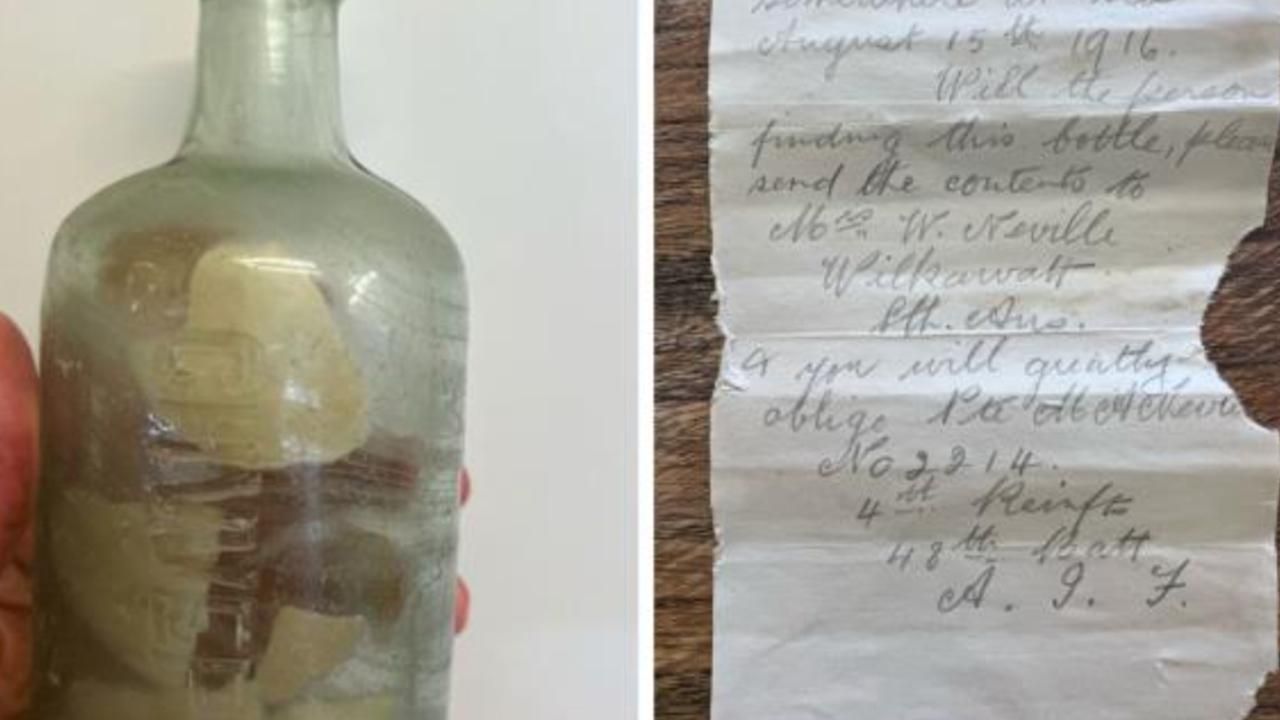 somewhere at sea
August 15th 1916.
Will the person
finding this bottle, pleas
send the contents to
Mrs. W. Neville
Wilkawatt
Sth. Aus.
& you will greatly
oblige Pte M A Nevil
No 2214.
4th Reinfts
48th Batt
A. I. F.